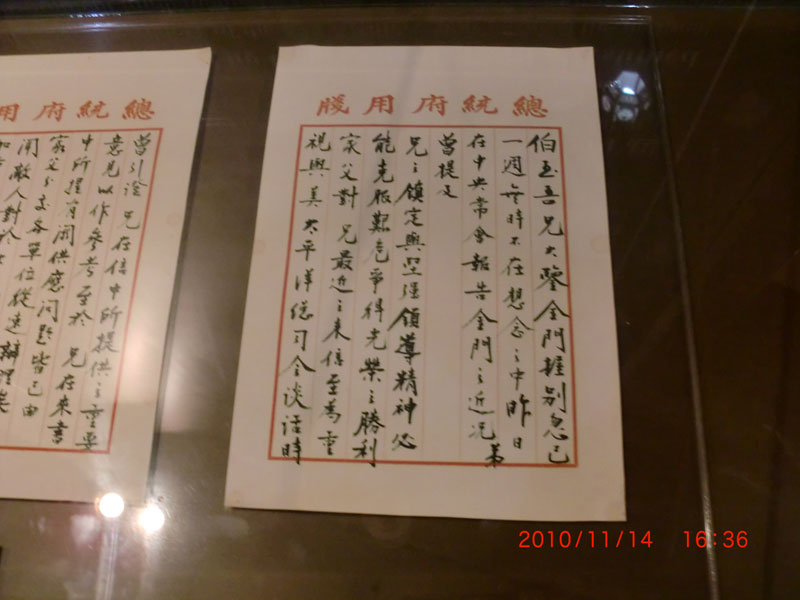 總統府用牋
伯玉吾兄大鑒金門握別忽已
一週無時不在想念之中昨日
在中央常會報告金門之近況弟
曾提及
兄之鎮定與堅强領導精神必
能克服艱危爭得光榮之勝利
家父對 兄最近之來信至為重
視與美太平洋總司令談話時
總統府用
曾引證 兄在信中所提供之重要
意見以作參考至於 兄在來書
中所提有關供應问題皆已由
家父分交各單位從速辦理矣
聞敵人對於
2010/11/14 16:36